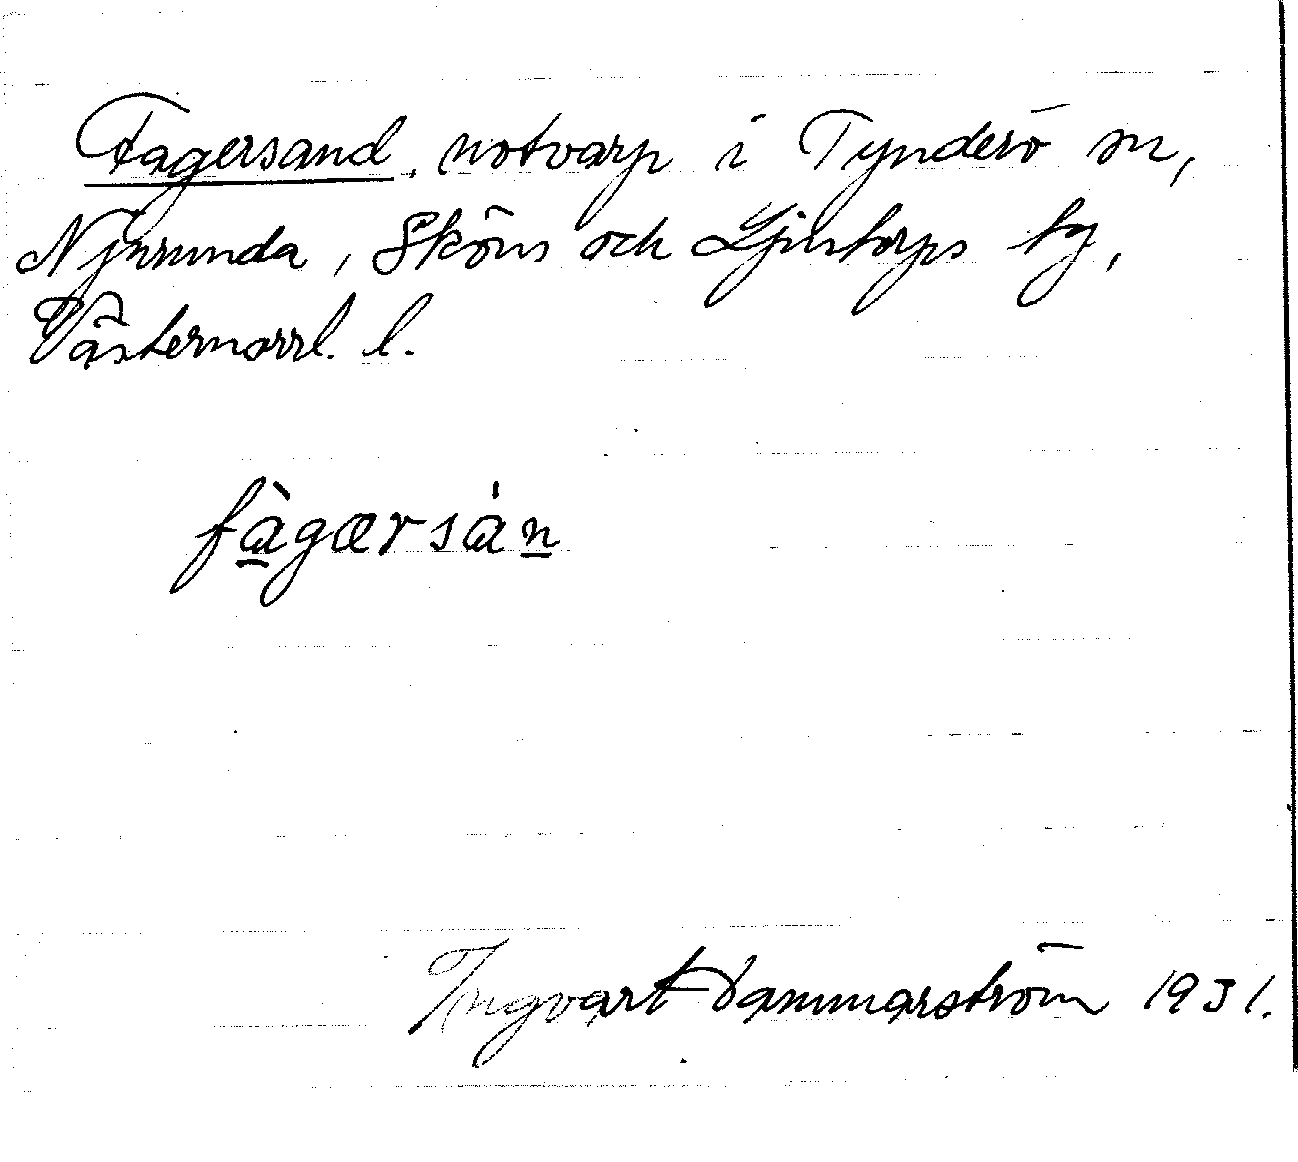 Fagersand, notvarp i Tynderö sn,
Njurunda, Sköns och Ljustorps tg,
Västernorrl. l.
fàgærsȧn
Ingvart Dammarström 1931.